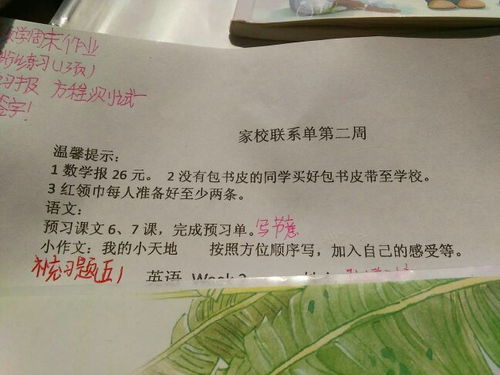 数学周末作业
练习(13页)
习报 方程测试一
签字!
家校联系单第二周
温馨提示:
1 数学报 26 元。 2 没有包书皮的同学买好包书皮带至学校。
3 红领巾每人准备好至少两条。
语文:
预习课文 6、7 课,完成预习单。写节意
小作文:我的小天地 按照方位顺序写,加入自己的感受等。
补充习题五1
英语 Week 2